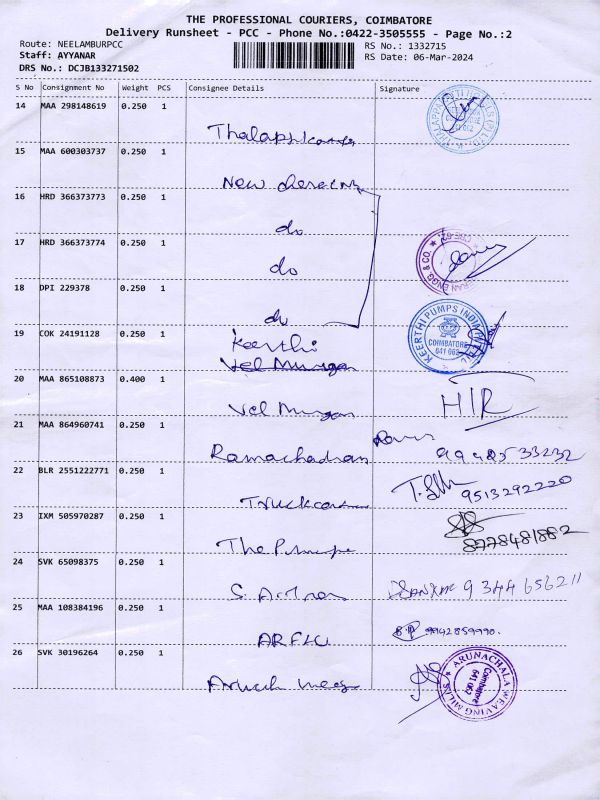 THE PROFESSIONAL COURIERS, COIMBATORE
Delivery Runsheet - PCC - Phone No.:0422-3505555 - Page No.:2
Route: NEELAMBURPCC RS No.: 1332715
Staff: AYYANAR RS Date: 06-Mar-2024
DRS No.: DCJB133271502
S No Consignment No Weight PCS Consignee Details Signature
14 MAA 298148619 0.250 1
15 MAA 600303737 0.250 1
New
16 HRD 366373773 0.250 1
do
17 HRD 366373774 0.250 1
do
18 DPI 229378 0.250 1
do
19 COK 24191128 0.250 1 Keerthi KEERTHI PUMPS COIMBATORE 641 062
Vel Murugan
20 MAA 865108873 0.400 1
Vel Murugan HIR
21 MAA 864960741 0.250 1
Ramachadran
22 BLR 2551222771 0.250 1
9513292220
23 IXM 505970287 0.250 1
The 8778481882
24 SVK 65098375 0.250 1
S. 9344656211
25 MAA 108384196 0.250 1
9942859990.
26 SVK 30196264 0.250 1 ARUNACHALA WEAVING MILLS Coimbatore 641 062